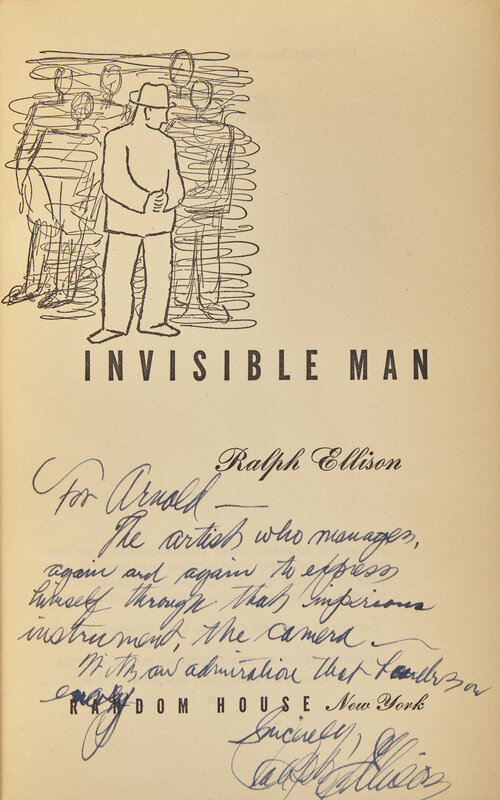 INVISIBLE MAN
Ralph Ellison
For Arnold —
The artist who manages,
again and again to express
himself through that imperious
instrument, the camera —
With an admiration that borders on
envy
RANDOM HOUSE New York
Sincerely,
Ralph Ellison